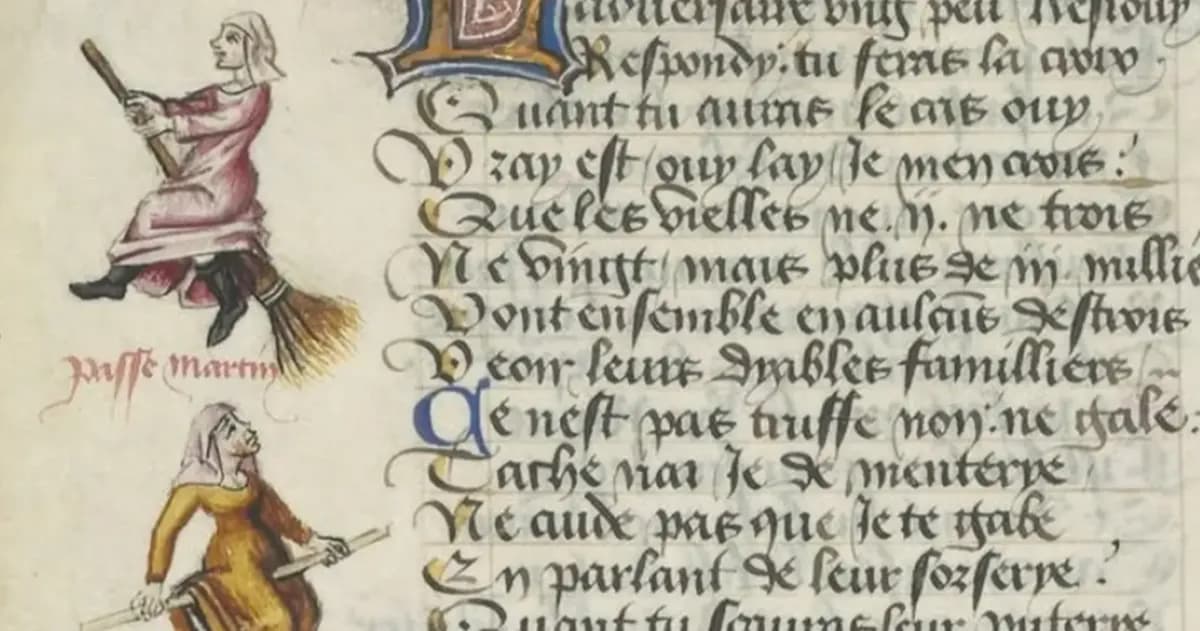 Ladversaire ving peu resiouy
Respondy: tu feras la croix
Quant tu auras le cas ouy
Vray est ouy lay Je men crois:
Que les vielles ne .ij. ne trois
Ne vingt mais plus de iij. millie
Vont ensemble en aulcuns destrois
Veoir leurs dyables familliers
passe martin
Ce nest pas truffe non: ne gale.
Tache nai Je de menterye
Ne cuide pas que Je te gabe
En parlant de leur sorserye:
Quant tu scauras leur